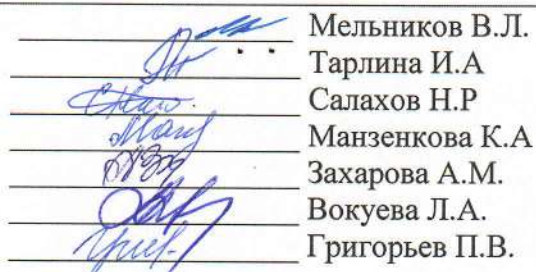 Мельников В.Л.
Тарлина И.А
Салахов Н.Р
Манзенкова К.А
Захарова А.М.
Вокуева Л.А.
Григорьев П.В.